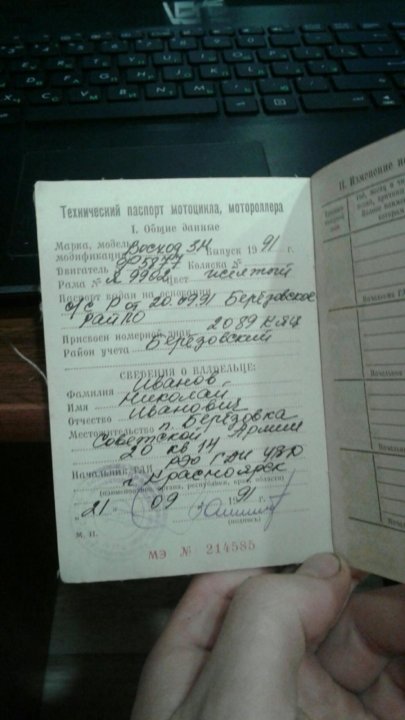 Технический паспорт мотоцикла, мотороллера
I. Общие данные
Марка, модель Восход 3М
модификация Выпуск 1991 г.
Двигатель Коляска №
Рама № Л 9962 Цвет
Паспорт выдан на основании
с/с б/н от 20.09.91 Берёзовское
РАЙПО
Присвоен номерной знак 2089 КЯЦ
Район учета Берёзовский
СВЕДЕНИЯ О ВЛАДЕЛЬЦЕ:
Фамилия Иванов
Имя Николай
Отчество Иванович
Местожительство п. Берёзовка
Советской Армии
20 кв 14
Начальник ГАИ РЭО ГАИ УВД
г. Красноярск
(наименование органа, республики, края, области)
„21" 09 1991 г.
(подпись)
М. П.
МЭ № 214585
II. Изменение